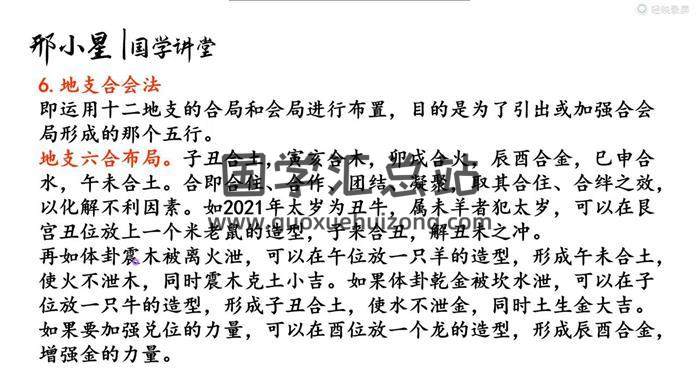 轻视录屏
邢小星 | 国学讲堂
6. 地支合会法
即运用十二地支的合局和会局进行布置，目的是为了引出或加强合会
局形成的那个五行。
地支六合布局。子丑合土，寅亥合木，卯戌合火，辰酉合金，巳申合
水，午未合土。合即合住、合作、团结、凝聚，取其合住、合绊之效，
以化解不利因素。如2021年太岁为丑牛，属未羊者犯太岁，可以在艮
宫丑位放上一个米老鼠的造型，子来合丑，解丑未之冲。
再如体卦震木被离火泄，可以在午位放一只羊的造型，形成午未合土，
使火不泄木，同时震木克土小吉。如果体卦乾金被坎水泄，可以在子
位放一只牛的造型，形成子丑合土，使水不泄金，同时土生金大吉。
如果要加强兑位的力量，可以在酉位放一个龙的造型，形成辰酉合金，
增强金的力量。
国学汇总站
www.guoxuehuizong.com